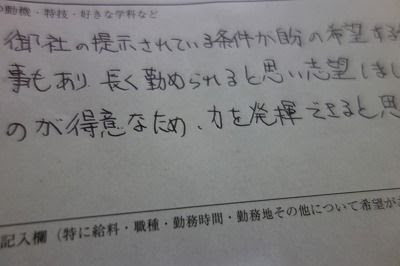 動機・特技・好きな学科など
御社の提示されている条件が自分の希望する
事もあり、長く勤められると思い志望しまし
のが得意なため、力を発揮できると思
記入欄（特に給料・職種・勤務時間・勤務地その他について希望が